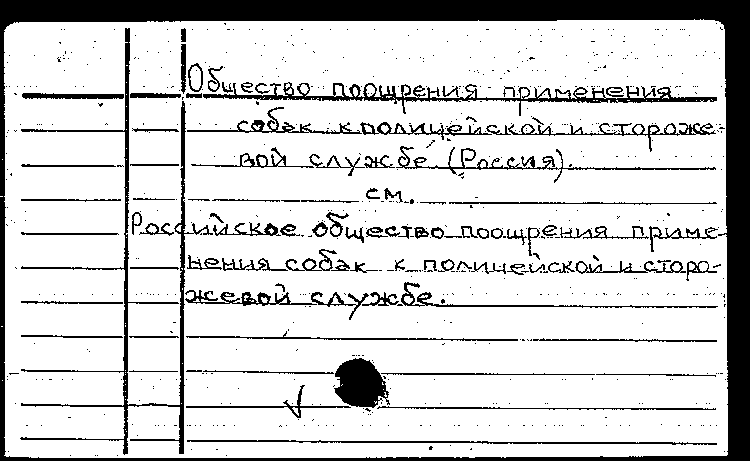 Общество поощрения применения
собак к полицейской и стороже-
вой службе (Россия).
см.
Российское общество поощрения приме-
нения собак к полицейской и сторо-
жевой службе.